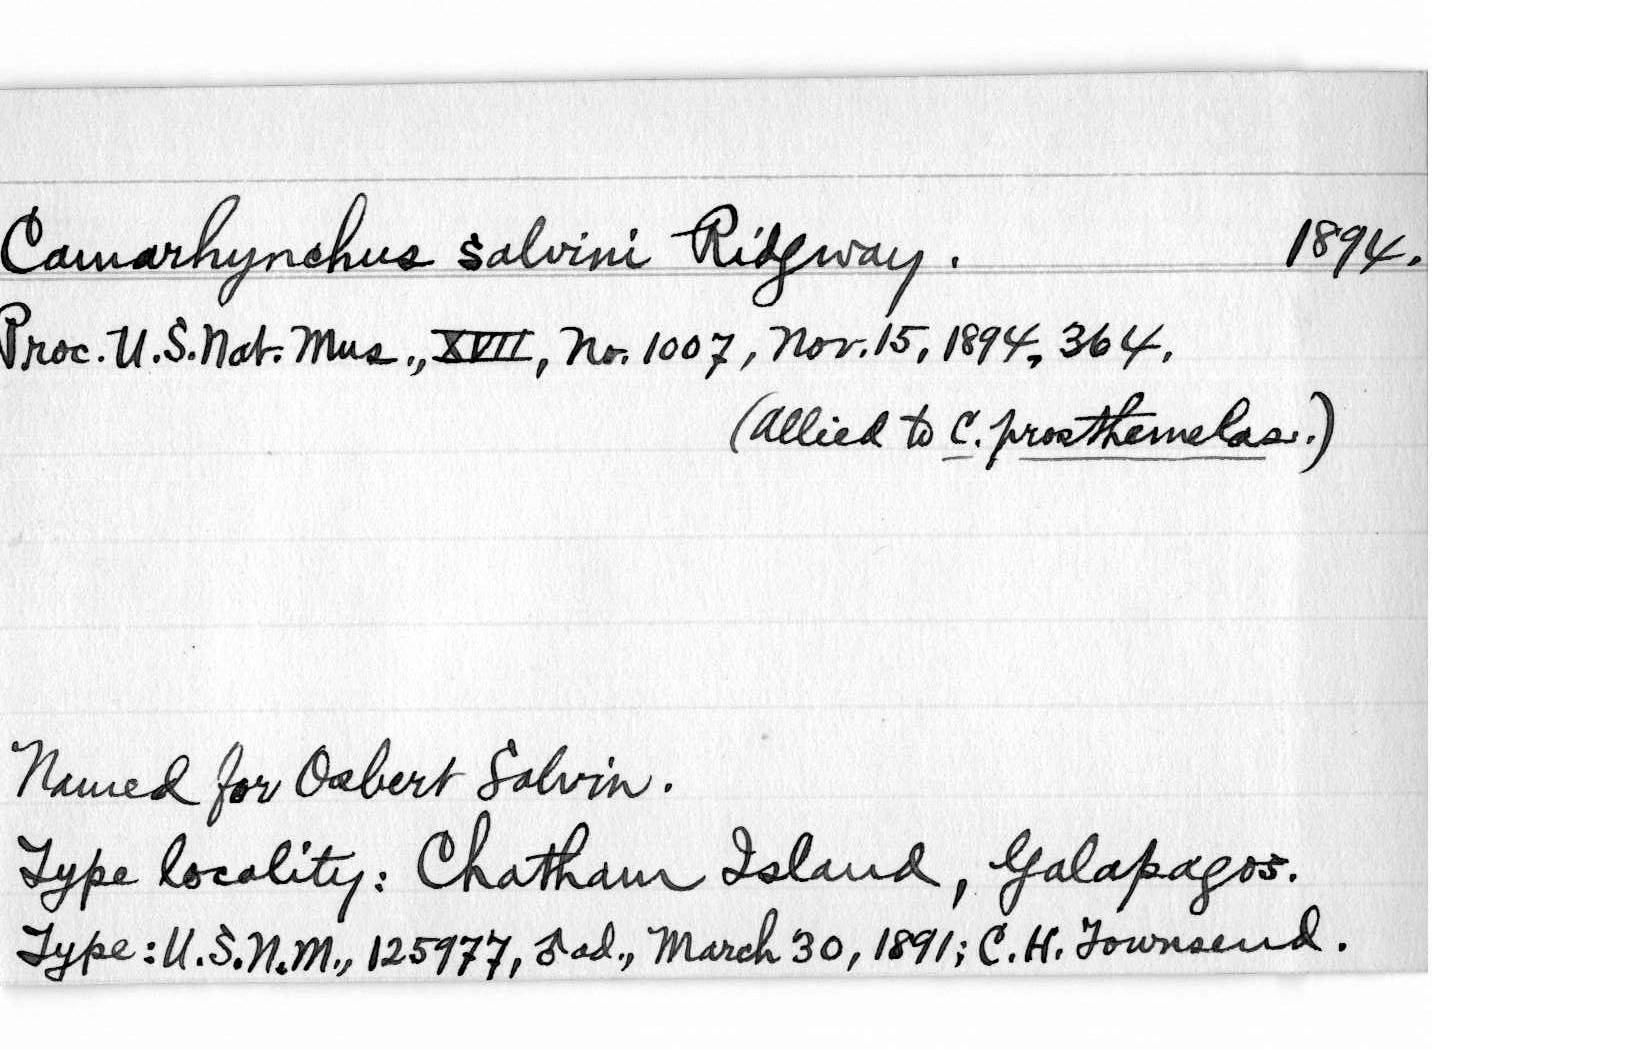 Camarhynchus salvini Ridgway. 1894.
Proc. U.S. Nat. Mus., XVII, No. 1007, Nov. 15, 1894, 364.
(Allied to C. prosthemelas.)
Named for Osbert Salvin.
Type locality: Chatham Island, Galapagos.
Type: U.S.N.M., 125977, ♂ ad., March 30, 1891; C.H. Townsend.